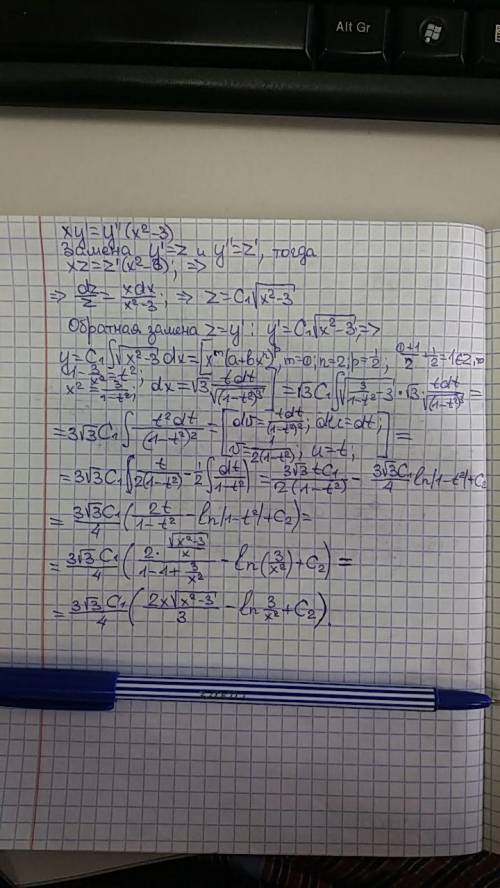 Alt Gr
xy' = y''(x²-3)
Замена y'=z и y''=z', тогда
xz=z'(x²-3); =>
=> dz/z = xdx/(x²-3); => z=C₁√(x²-3)
Обратная замена z=y': y'=C₁√(x²-3); =>
y=C₁∫√(x²-3)dx=[x^m(a+bx^n)^p, m=0; n=2; p=1/2; (0+1)/2+1/2=1∈Z,
1-3/x²=t²;
x²=3/(1-t²); dx=√3 tdt/√((1-t²)³)] = √3C₁∫√(3/(1-t²)-3)·√3·tdt/√((1-t²)³)=
=3√3C₁∫t²dt/(1-t²)²=[dv=tdt/(1-t²)²; du=dt; v=1/(2(1-t²)); u=t;]=
=3√3C₁∫t/(2(1-t²))-1/2∫dt/(1-t²)=3√3tC₁/(2(1-t²))-3√3C₁/4 ln|1-t²|+C₂
=3√3C₁/4(2t/(1-t²)-ln|1-t²|+C₂)=
=3√3C₁/4(2·(√(x²-3)/x)/(1-1+3/x²)-ln(3/x²)+C₂)=
=3√3C₁/4(2x√(x²-3)/3-ln 3/x²+C₂).